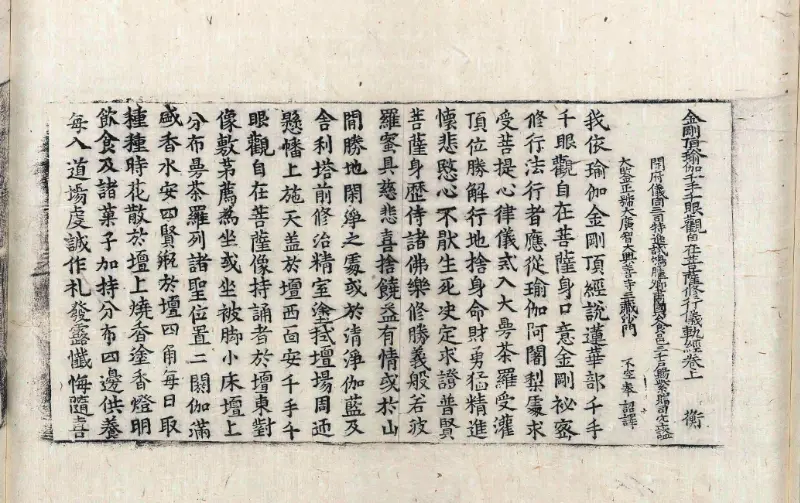 金剛頂瑜伽千手千眼觀自在菩薩修行儀軌經卷上　衡
開府儀同三司特進試鴻臚卿肅國公食邑三千户賜紫贈司空諡
大鑒正號大廣智大興善寺三藏沙門　不空奉　詔譯
我依瑜伽金剛頂經說蓮華部千手
千眼觀自在菩薩身口意金剛祕密
修行法行者應從瑜伽阿闍梨處求
受菩提心律儀或入大曼荼羅受灌
頂位勝解行地捨身命財勇猛精進
懷悲愍心不猒生死決定求證普賢
菩薩身歷侍諸佛樂修勝義般若波
羅蜜具慈悲喜捨饒益有情或於山
間勝地閑淨之處或於清淨伽藍及
舍利塔前修治精室塗拭壇場周迊
懸幡上施天盖於壇西面安千手千
眼觀自在菩薩像持誦者於壇東對
像敷茅薦為坐或坐被脚小床壇上
分布曼荼羅列諸聖位置二閼伽滿
盛香水安四賢瓶於壇四角每日取
種種時花散於壇上燒香塗香燈明
飲食及諸菓子加持分布四邊供養
每入道場虔誠作礼發露懺悔隨喜